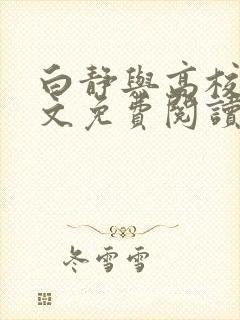 白靜與高校
文免費閱讀
冬雪雪